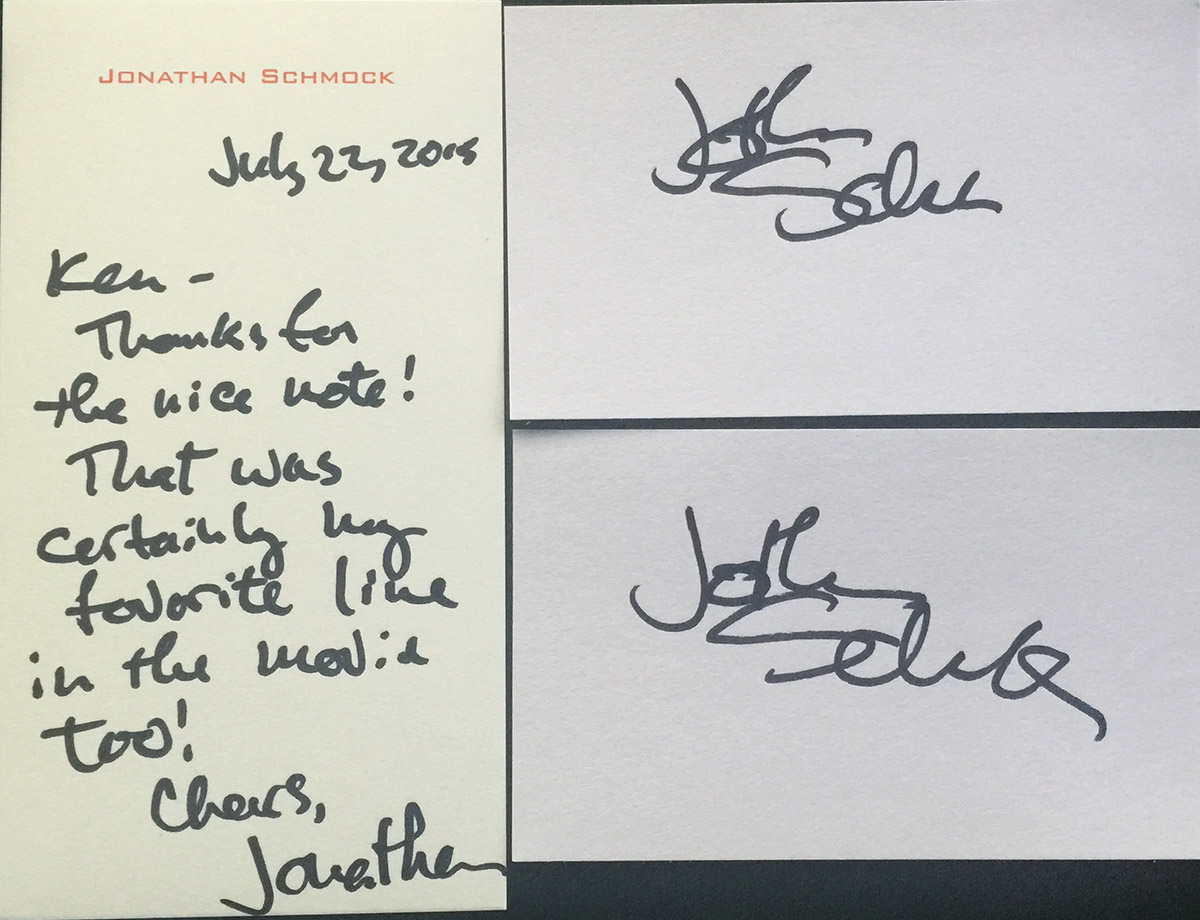 JONATHAN SCHMOCK
July 22, 2015
Ken -
Thanks for
the nice note!
That was
certainly my
favorite line
in the movie
too!
Cheers,
Jonathan